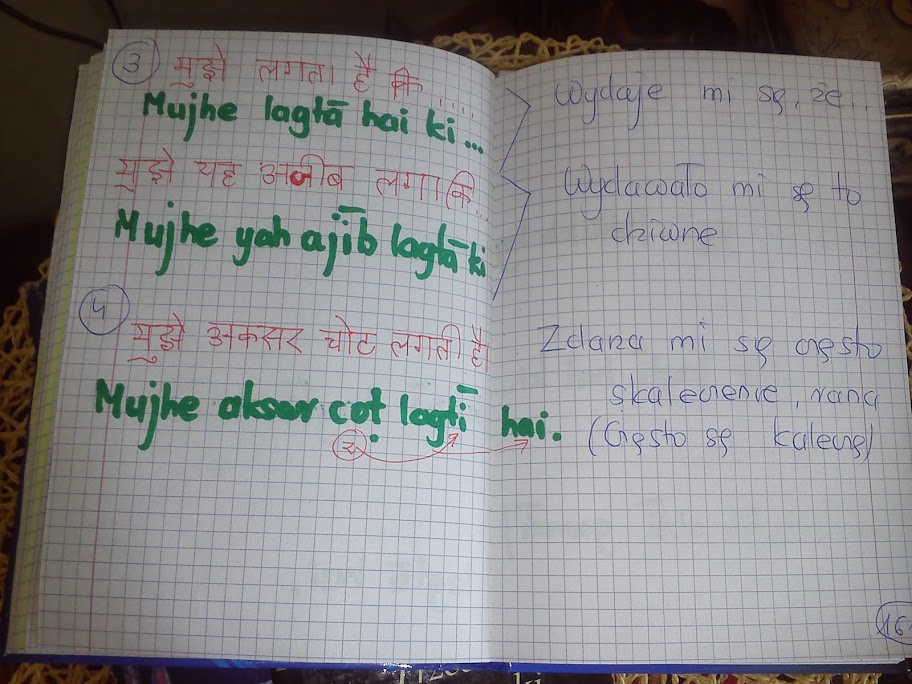 3 मुझे लगता है कि ....
Mujhe lagtā hai ki ...
Wydaje mi się, że ...
मुझे यह अजीब लगा कि...
Mujhe yah ajīb lagtā ki
Wydawało mi się to
dziwne
4
मुझे अकसर चोट लगती है
Mujhe akser coṭ lagtī hai.
ż
Zdarza mi się często
skaleczenie, rana
(Często się kaleczę)
16